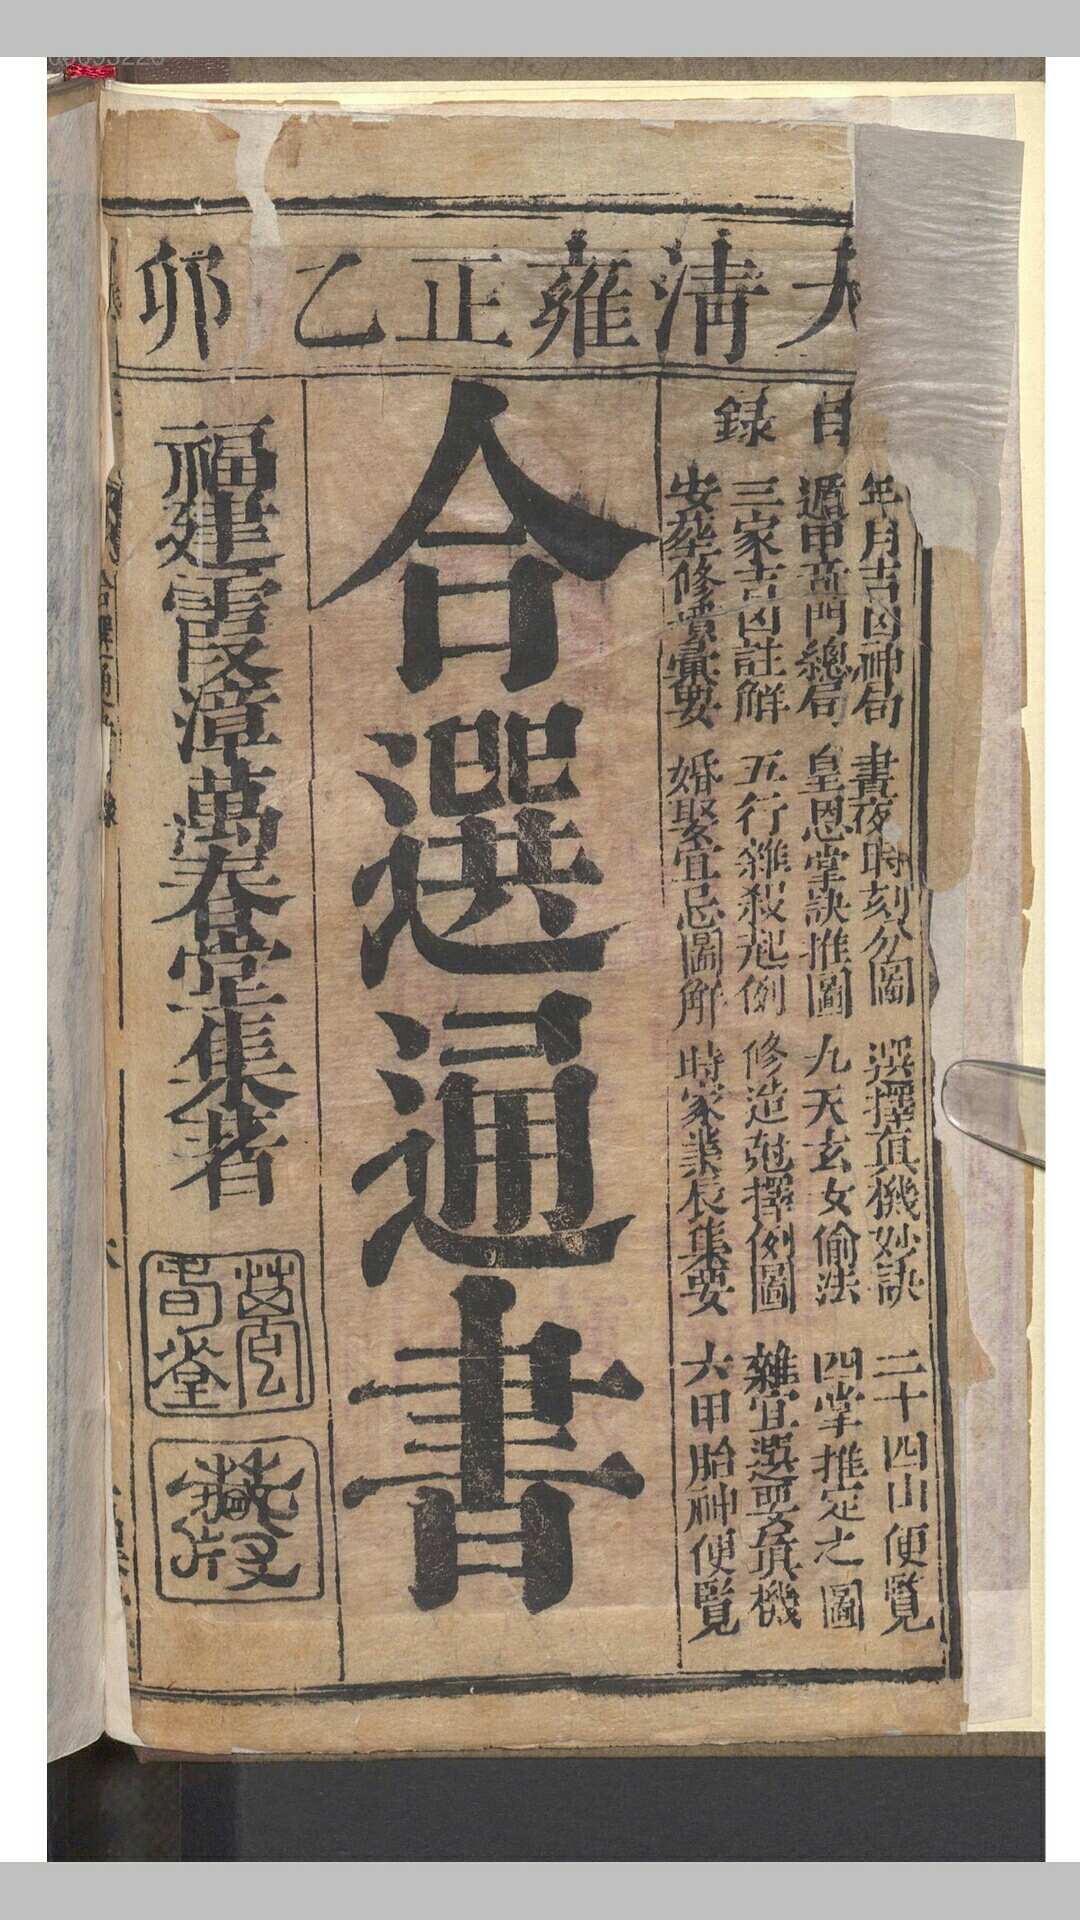 大清雍正乙卯
目錄
年月吉凶神局 晝夜時刻分圖 選擇真機妙訣 二十四山便覧
遁甲奇門總局 皇恩掌訣推圖 九天玄女偷法 四掌推定之圖
三家吉凶註解 五行雜殺起例 修造尅擇例圖 雜宜選要真機
安葬修墳彙要 婚娶宜忌圖解 時家業長集要 六甲胎神便覧
合選通書
福建霞漳萬春堂集著
堂
藏版